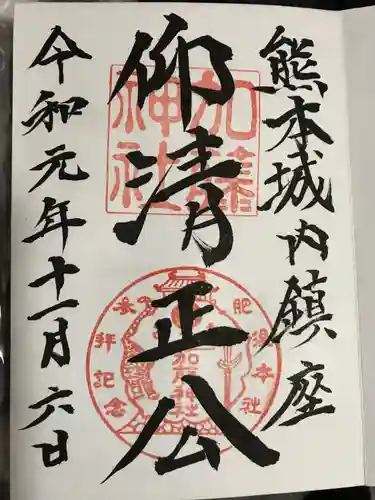 熊本城内鎮座
仰清正公
令和元年十一月六日
加藤神社
参拝記念
加藤神社